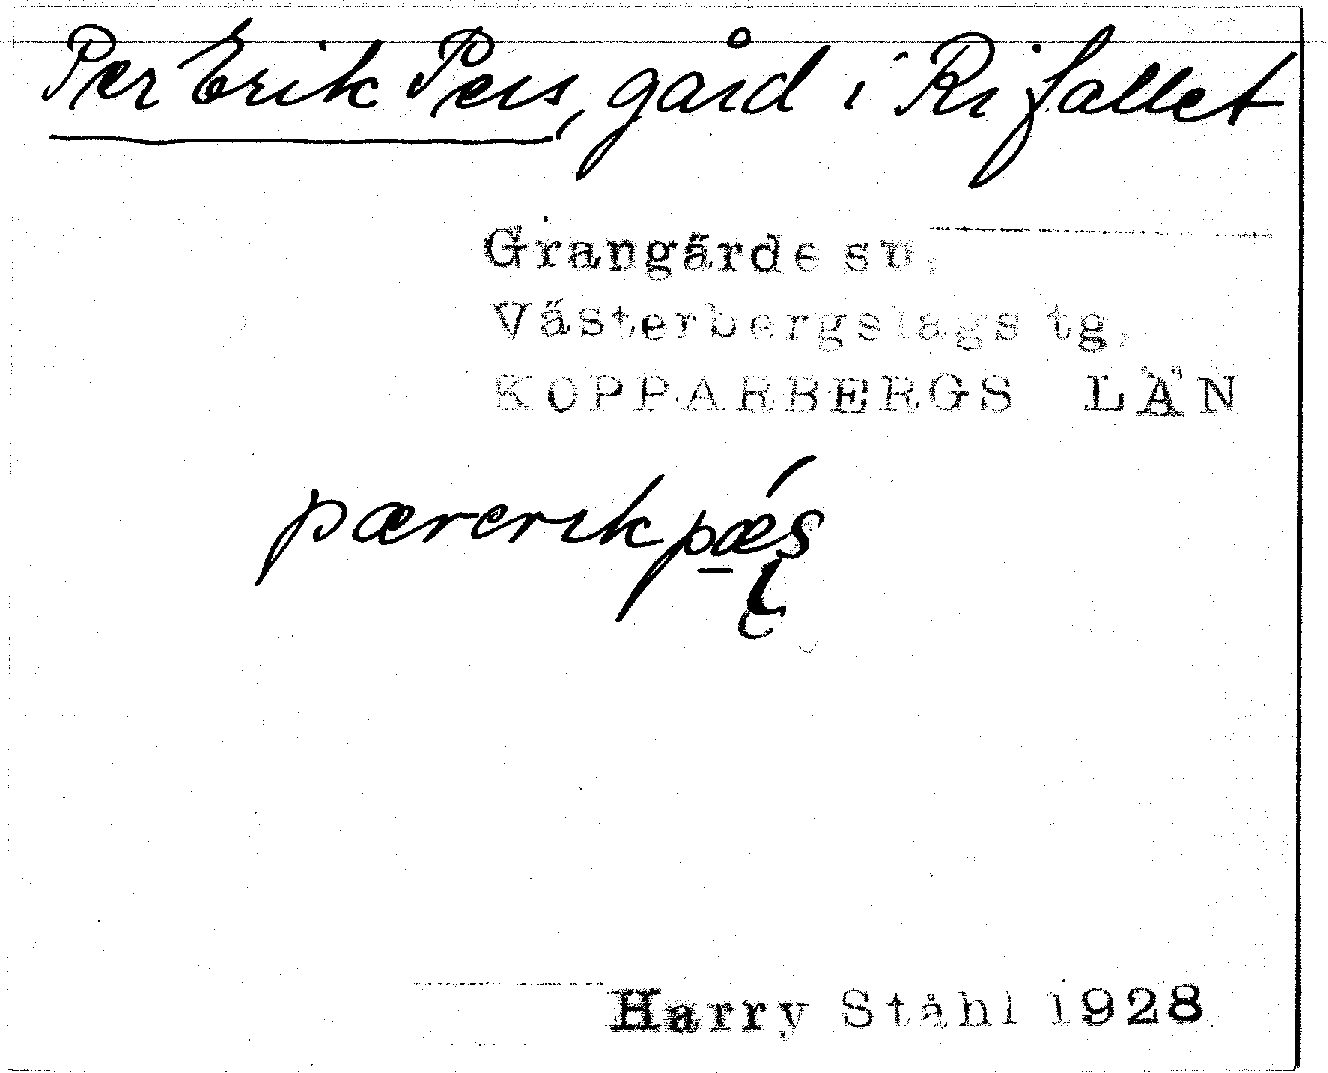 Per Erik Pers, gård i Rifallet
Grangärde sn,
Västerbergslags tg,
KOPPARBERGS LÄN
pærerik pæ̲´s
Harry Ståhl 1928